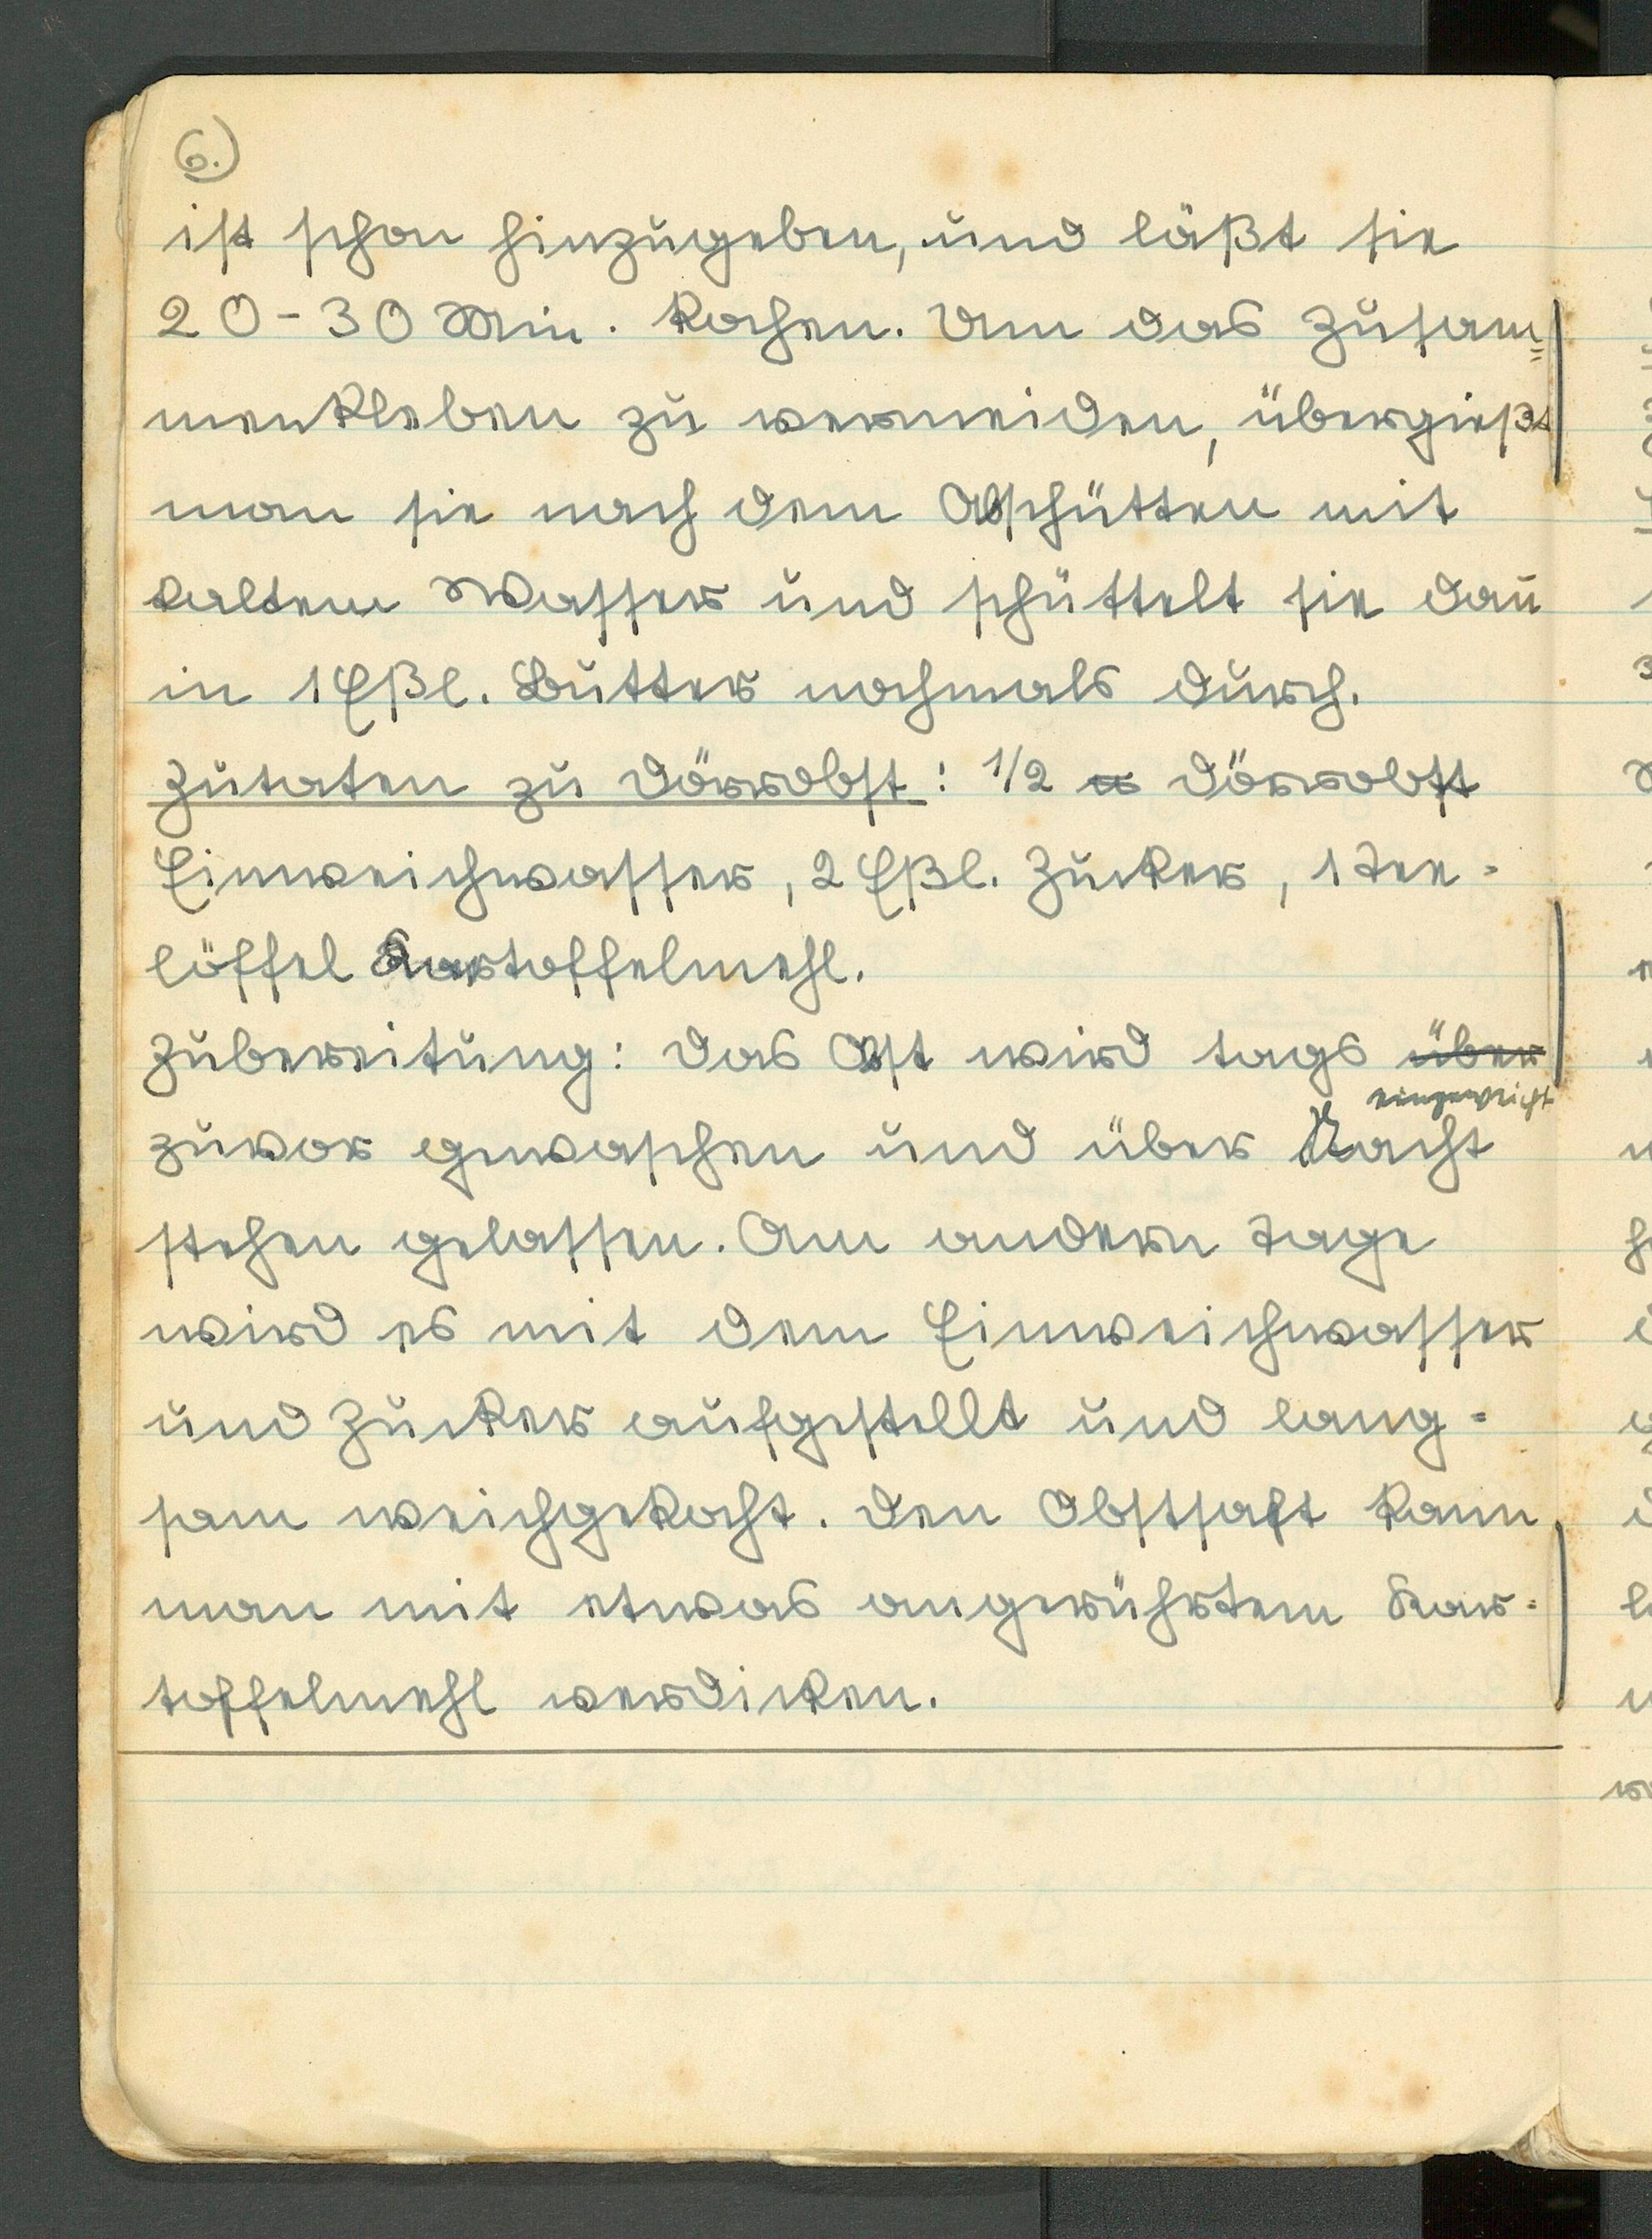 6.)
ist schon hinzugeben, und läßt sie
20-30 Min. kochen. Um das Zusam=
menkleben zu vermeiden, übergießt
man sie nach dem Abschütten mit
kaltem Wasser und schüttelt sie dañ
in 1 Eßl. Butter nochmals durch.
Zutaten zu Dörrobst: 1/2 Dörrobst
Einweichwasser, 2 Eßl. Zucker, 1 Tee=
löffel Kartoffelmehl.
Zubereitung: Das Obst wird tags über
eingeweicht
zuvor gewaschen und über Nacht
stehen gelassen. Am andern Tage
wird es mit dem Einweichwasser
und Zucker aufgestellt und lang=
sam weichgekocht. Den Obstsaft kann
man mit etwas angerührtem Kar=
toffelmehl verdicken.